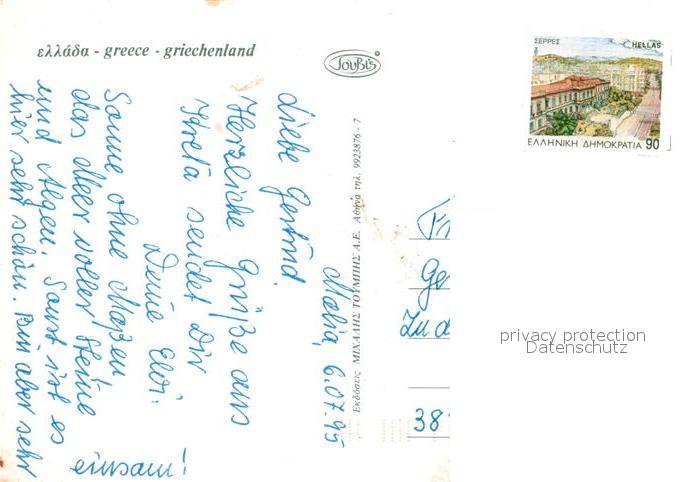 ελλάδα - greece - griechenland
JouBi's
ΣΕΡΡΕΣ
HELLAS
ΕΛΛΗΝΙΚΗ ΔΗΜΟΚΡΑΤΙΑ 90
Malia, 6.07.95
Liebe Gertrud,
Herzliche Grüße aus
Kreta sendet Dir
Deine Elvi.
Sonne ohne Maßen
das Meer voller Steine
und Algen. Sonst ist es
hier sehr schön. Bin aber sehr
einsam!
Εκδόσεις ΜΙΧΑΛΗΣ ΤΟΥΜΠΗΣ Α.Ε. Αθήνα τηλ. 9923876 - 7
Fr
Ge
Zu d
38
privacy protection
Datenschutz